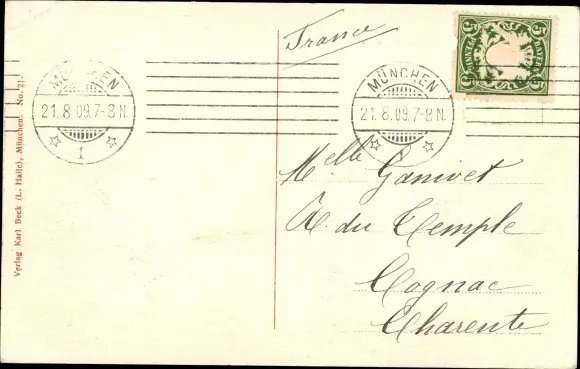 France
5 PFENNIG BAYERN 5
MÜNCHEN
21. 8. 09. 7-8 N.
1
MÜNCHEN
21. 8. 09. 7-8 N.
Melle Ganivet
R. du Temple
Cognac
Charente
Verlag Karl Beck (L. Halle), München. No. 21.